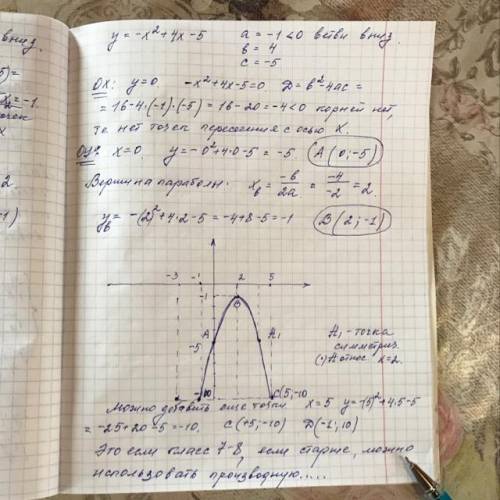 y = -x²+4x-5 a = -1 <0 ветви вниз.
b = 4
c = -5
OX: y=0. -x²+4x-5=0 D=b²-4ac=
= 16-4·(-1)·(-5) = 16-20=-4<0 корней нет,
т.е. нет точек пересечения с осью X.
OY: x=0. y=-0²+4·0-5 = -5. A(0;-5)
Вершина параболы: xв = -b/2a = -4/-2 = 2.
yв = -(2)²+4·2-5 = -4+8-5=-1 B(2;-1)
-3 -1 2 5
-1
B
A A₁
-5
A₁ - точка
симметриз.
(·)A относ. x=2.
-10 C(5;-10
Можно добавить еще точки x=5 y=-(5)²+4·5-5
= -25+20-5=-10. C(+5;-10) D(-1;10)
Это если класс 7-8, если старше, можно
использовать производную.....
вниз.
5)=
=-1.
x
2.
-1)